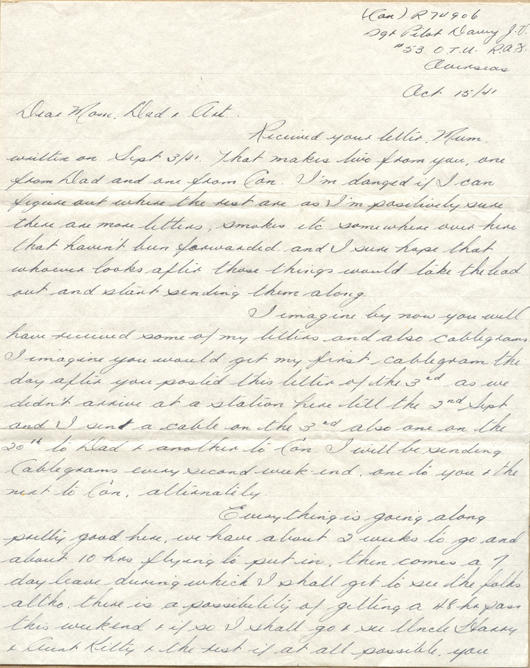 (Can) R 74906
Sgt Pilot Davy J.V.
#53 O.T.U. R.A.F.
Overseas
Oct 15/41
Dear Mom, Dad & Art.
Received your letter, Mum,
written on Sept 3/41. That makes two from you, one
from Dad and one from Con. I'm danged if I can
figure out where the rest are as I'm positively sure
there are more letters, smokes etc somewhere over here
that haven't been forwarded and I sure hope that
whoever looks after those things would take the lead
out and start sending them along.
I imagine by now you will
have received some of my letters and also cablegrams
I imagine you would get my first cablegram the
day after you posted this letter of the 3rd as we
didn't arrive at a station here till the 2nd Sept
and I sent a cable on the 3rd also one on the
20th to Dad & another to Con I will be sending
Cablegrams every second week-end, one to you & the
next to Con, alternately.
Everything is going along
pretty good here, we have about 2 weeks to go and
about 10 hrs flying to put in, then comes a 7
day leave during which I shall get to see the folks
altho, there is a possibility of getting a 48 hr pass
this weekend & if so I shall go & see Uncle Harry
& Aunt Kitty & the rest if at all possible, you